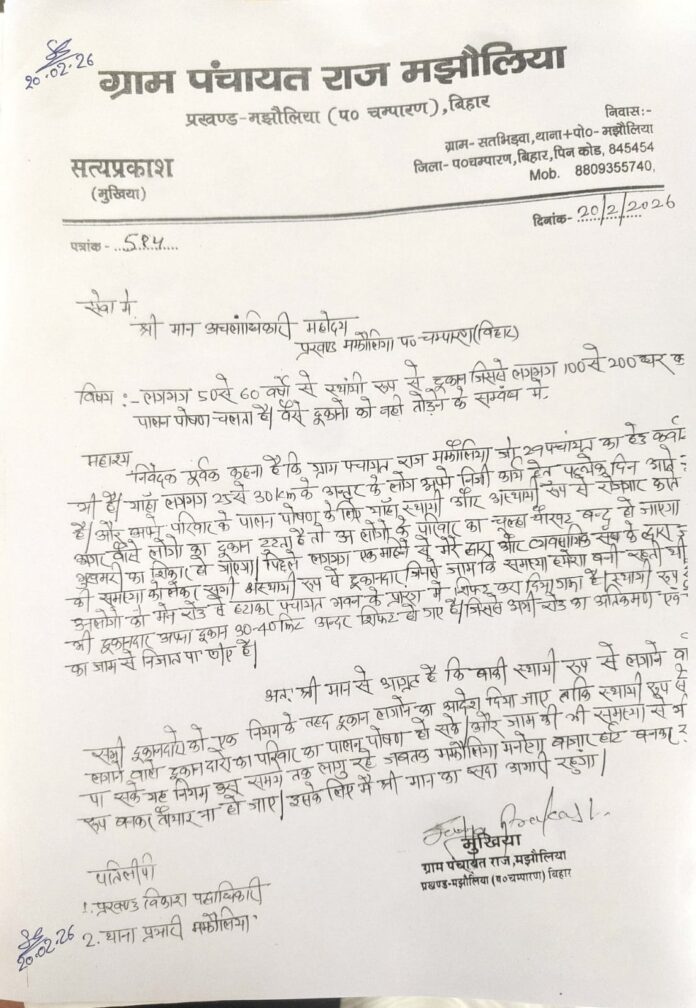 20.02.26
ग्राम पंचायत राज मझौलिया
प्रखण्ड-मझौलिया (प० चम्पारण), बिहार
निवास:-
ग्राम- सतभिड़वा, थाना+पो०- मझौलिया
जिला- प०चम्पारण, बिहार, पिन कोड, 845454
Mob. 8809355740,
सत्यप्रकाश
(मुखिया)
पत्रांक - 584
दिनांक- 20/2/2026
सेवा में,
श्री मान अचलाधिकारी महोदय
प्रखण्ड मझौलिया प० चम्पारण (बिहार)
विषय :- लगभग 50 से 60 वर्षो से स्थायी रूप से दूकान जिससे लगभग 100 से 200 घर क
पालन पोषण चलता है। वैसे दूकानो को नही तोड़ने के सम्बंध में.
महाशय
निवेदक पूर्वक कहना है कि ग्राम पंचायत राज मझौलिया जो 29 पंचायत का हेड
भी है। यहाँ लगभग 25 से 30 km के अन्तर के लोग अपने निजी कार्य हेतु प्रत्येक दिन आते
है। और अपने परिवार के पालन पोषण के लिए यहाँ स्थायी और अस्थायी रूप से रोजगार करते
अगर वैसे लोगो का दूकान टुटता है तो उन लोगो के परिवार का चुल्हा चौपट बन्द हो जाएगा
भुखमरी का शिकार हो जाएगा। पिछले लगभग एक महिने से मेरे द्वारा और व्यवसायिक संघ के द्वारा
की समस्या को लेकर अस्थायी रूप से दूकानदार जिससे जाम कि समस्या हमेशा बनी रहती थी
उनलोगो को मेन रोड से हटाकर पंचायत भवन के प्रांगण में शिफ्ट करा दिया गया है। स्थायी रूप
भी दूकानदार अपना दूकान 30-40 फिट अन्दर शिफ्ट हो गए है। जिससे अभी रोड का अतिक्रमण
का जाम से निजात पा गए है।
अतः श्री मान से आग्रह है कि बाकी स्थायी रूप से लगाने वा
सभी दूकानदारो को एक नियम के तहद दूकान लगाने का आदेश दिया जाए ताकि स्थायी रूप से
लगाने वाले दूकानदारो का परिवार का पालन पोषण हो सके। और जाम की भी समस्या से
पा सके यह नियम उस समय तक लागु रहे जबतक मझौलिया बाजार हाट बनकर
रूप बनकर तैयार ना हो जाए। उसके लिए मैं श्री मान का सदा आभारी रहुंगा।
Satya Prakash
मुखिया
ग्राम पंचायत राज, मझौलिया
प्रखण्ड-मझौलिया (प०चम्पारण) बिहार
प्रतिलीपी
1. प्रखण्ड विकास पदाधिकारी
2. थाना प्रभारी मझौलिया
20.02.26